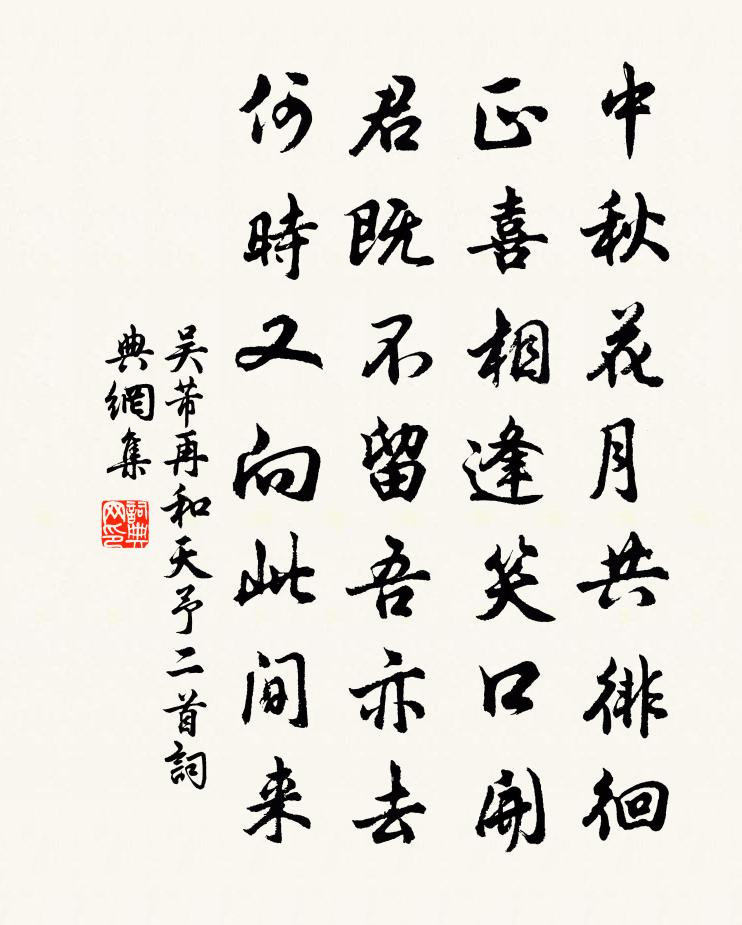 中秋花月共徘徊
正喜相逢笑口開
君既不留吾亦去
何時又向此間来
吴芾再和天予二首詞
典網集
詞典
网印